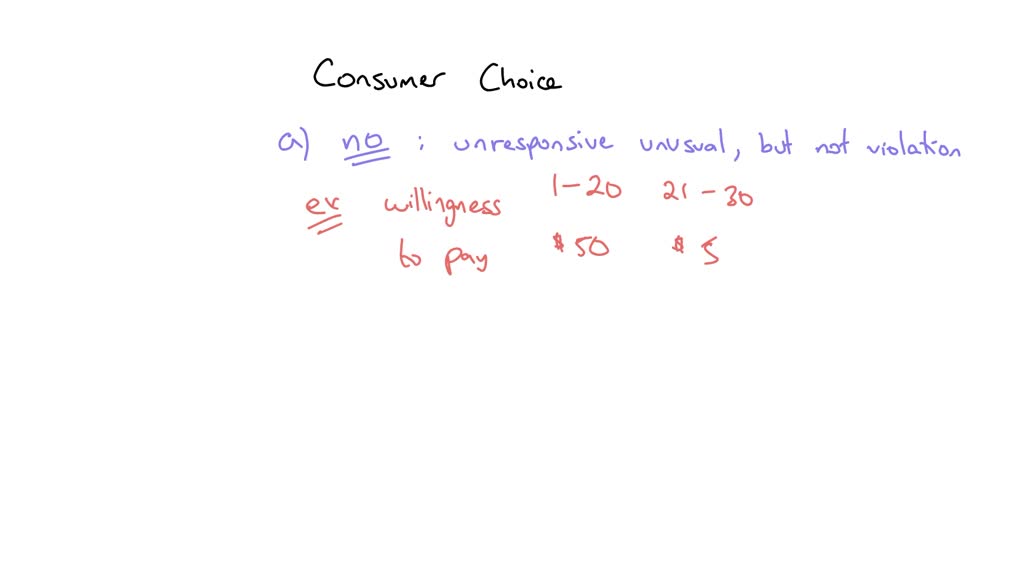 Consumer Choice
a) no : unresponsive unusual, but not violation
ex willingness 1-20 21-30
to pay $50 $5